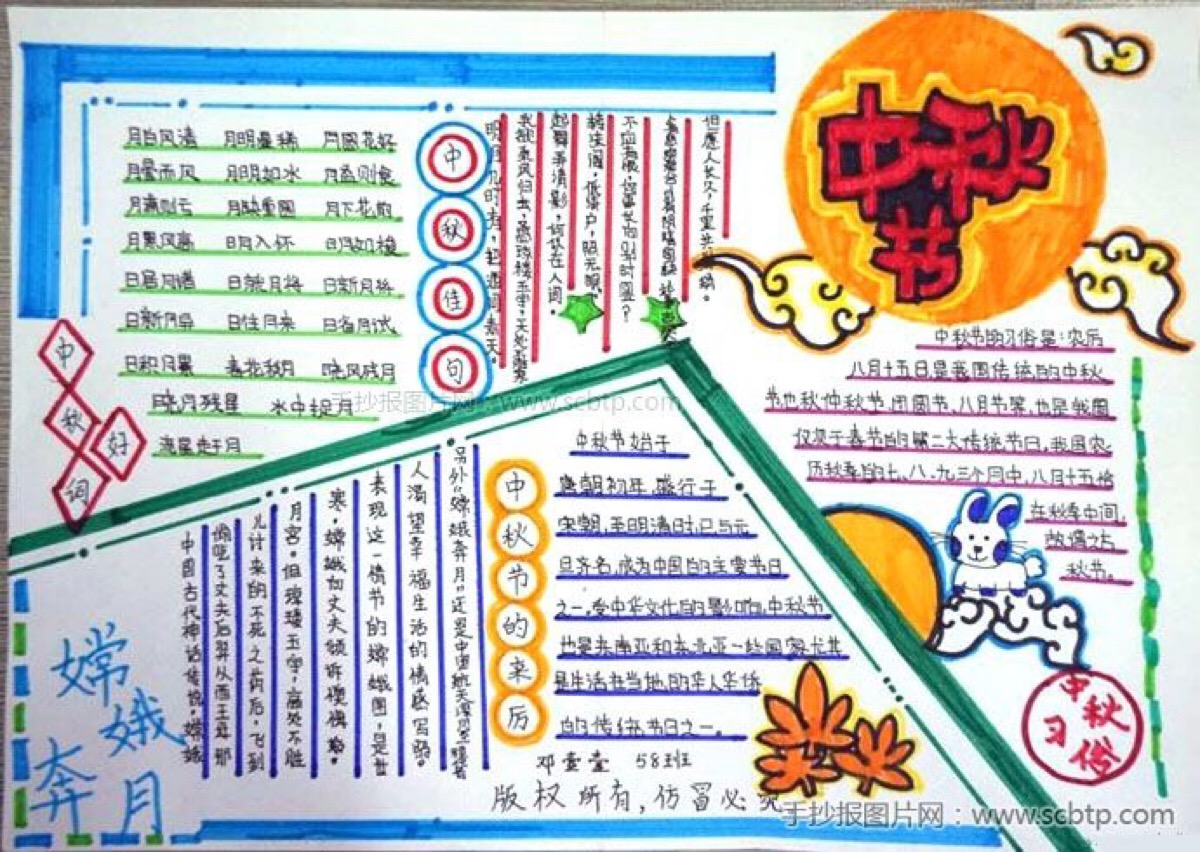 中秋节
中秋好词
月白风清 月明星稀 月圆花好
月晕而风 月明如水 月盈则食
月满则亏 月缺重圆 月下花前
月黑风高 日月入怀 日月如梭
日居月诸 日就月将 日新月异
日新月异 日往月来 日省月试
日积月累 春花秋月 晓风残月
晓月残星 水中捉月
流星赶月
中秋佳句
明月几时有,把酒问青天。
我欲乘风归去,
起舞弄清影,何似在人间。
转朱阁,低绮户,照无眠。
不应有恨,何事长向别时圆?
但愿人长久,千里共婵娟。
中秋节的习俗是:农历
八月十五日是我国传统的中秋
节也秋仲秋节,团圆节,八月节等,也是我国
仅次于春节的第二大传统节日,我国农
历秋季的七、八、九三个月中,八月十五恰
在秋季中间,
故谓之中
秋节。
中秋习俗
中秋节的来历
中秋节始于
唐朝初年,盛行于
宋朝,至明清时,已与元
旦齐名,成为中国的主要节日
之一,受中华文化的影响,中秋节
也是东南亚和东北亚一些国家尤其
是生活在当地的华人华侨
的传统节日之一。
嫦娥奔月
中国古代神话传说,嫦娥
偷吃了丈夫后羿从西王母那
儿讨来的不死之药后,飞到
月宫。但琼楼玉宇,高处不胜
寒,嫦娥向丈夫倾诉懊悔
表现这一情节的嫦娥图,是世
人渴望幸福生活的情感写照。
另外"嫦娥奔月"还是中国航天
58班
版权所有,仿冒必究
手抄报图片网:www.scbtp.com
手抄报图片网:www.scbtp.com